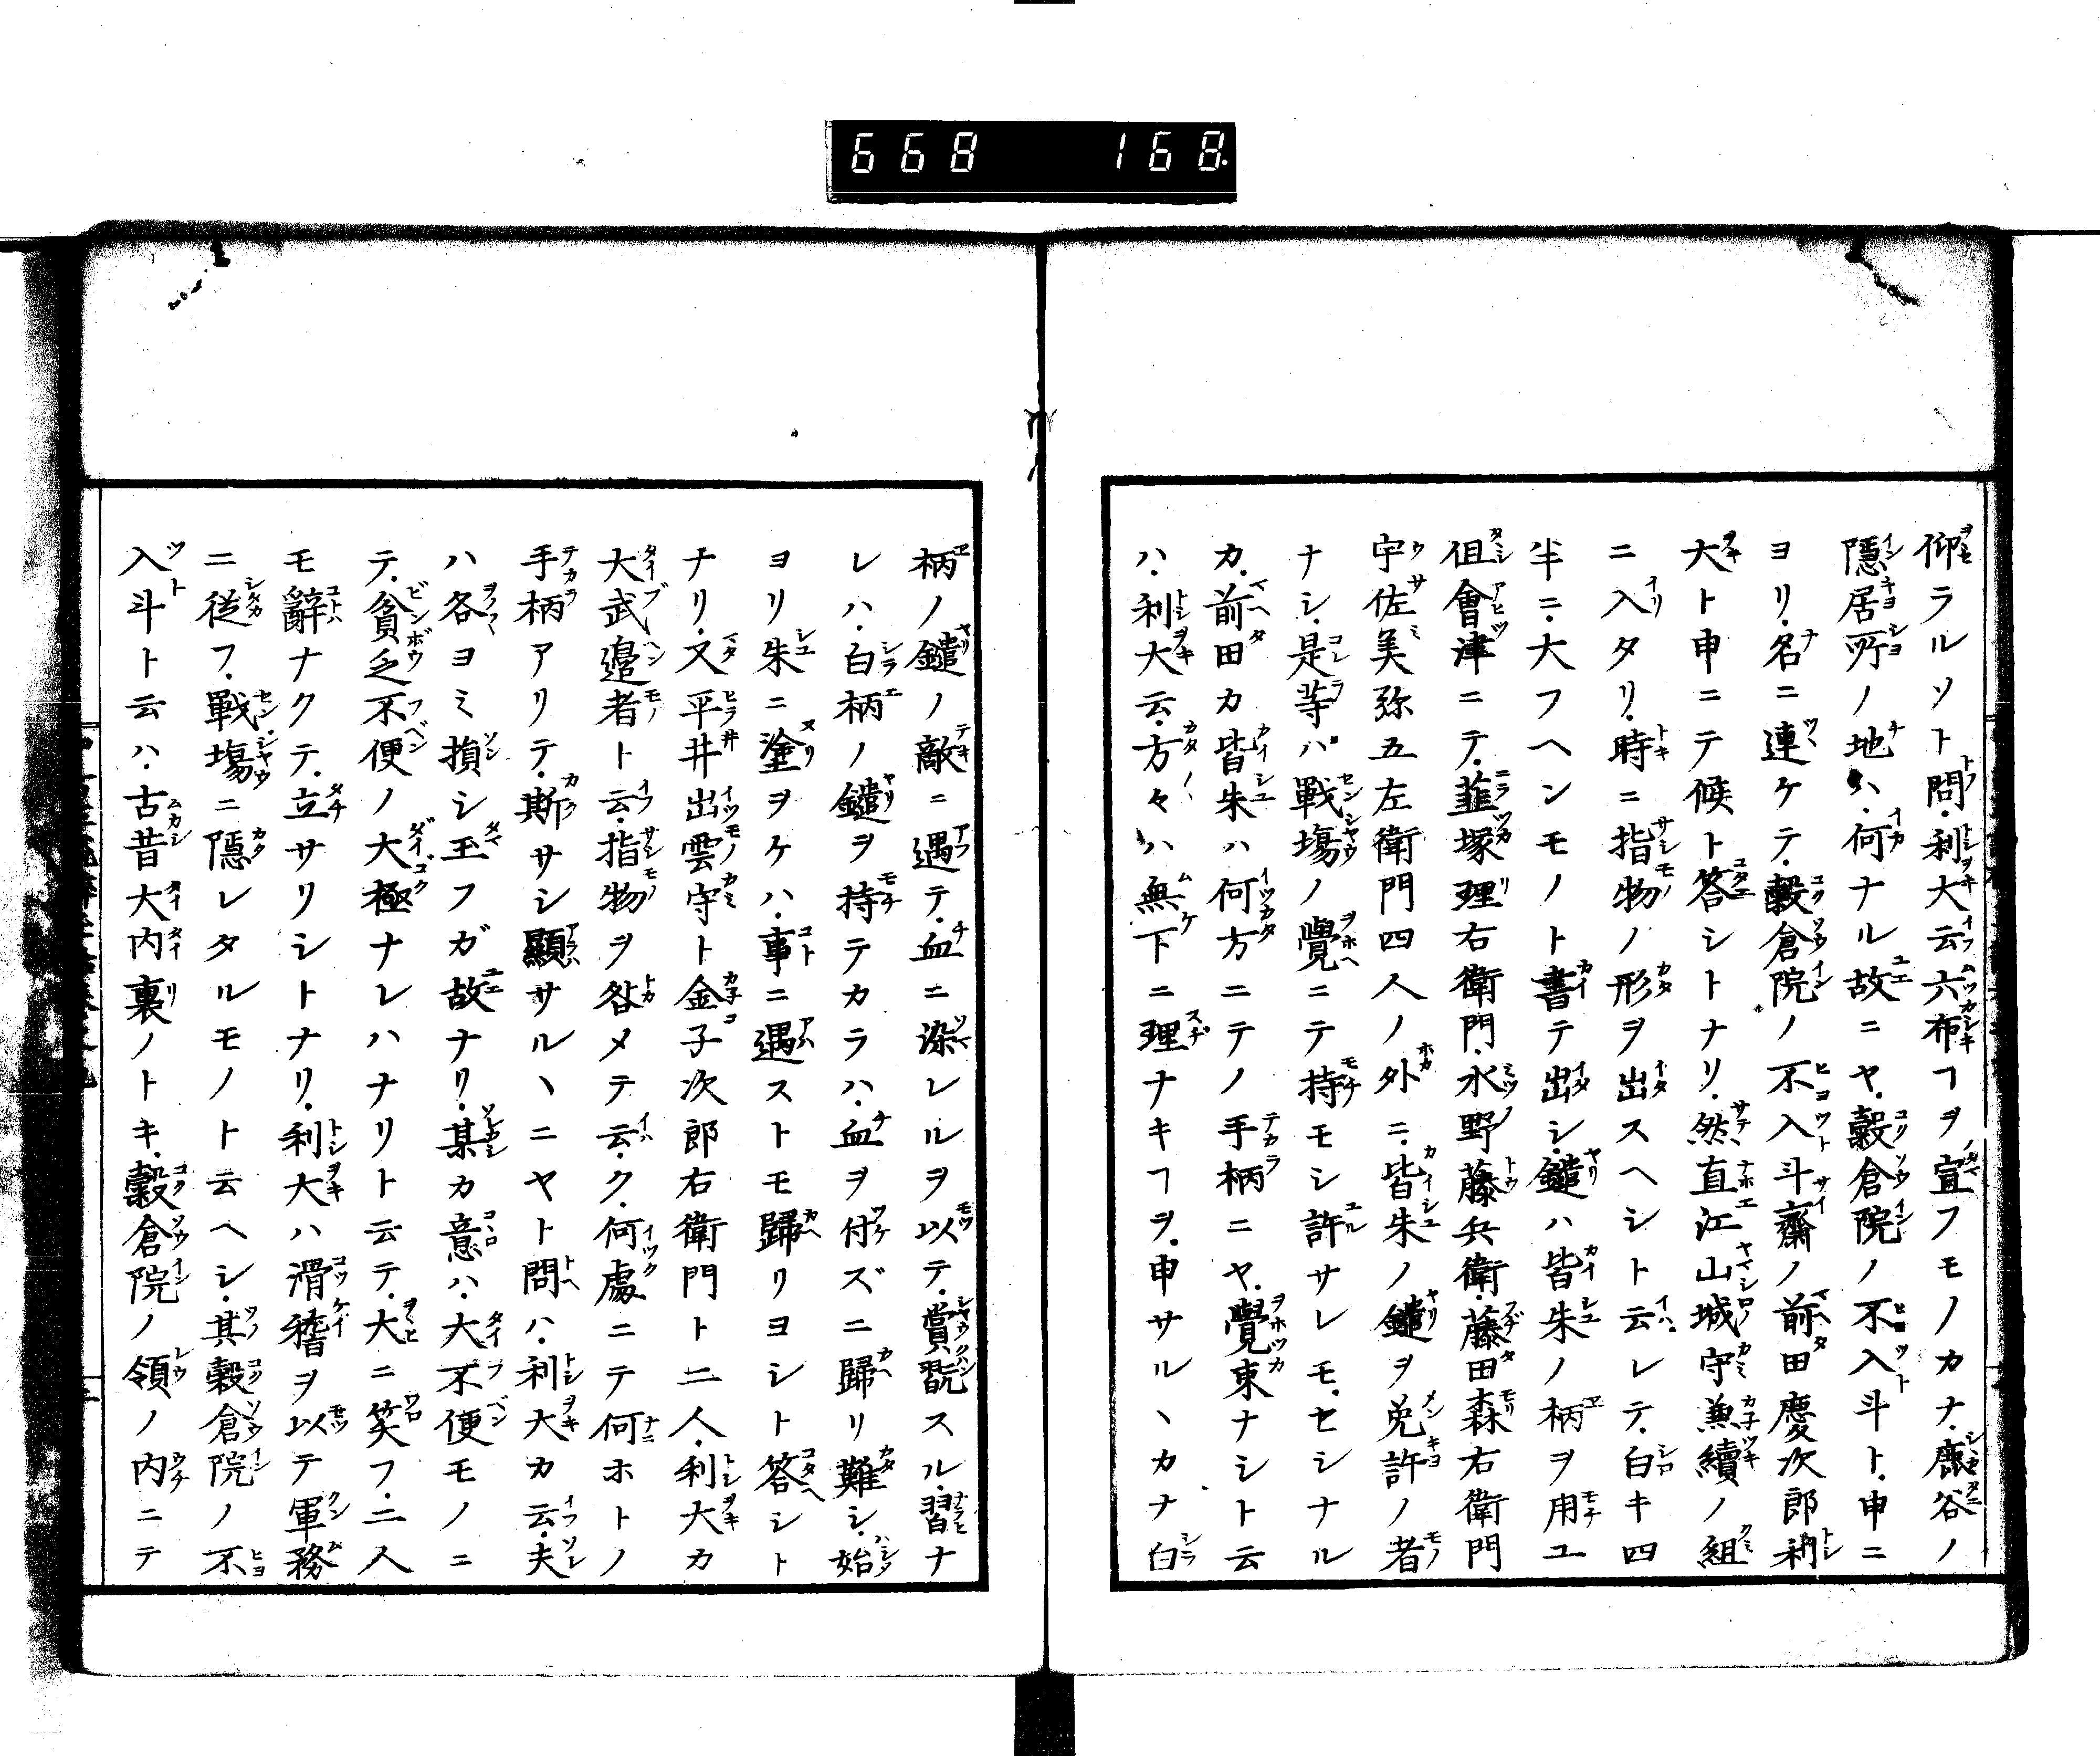 668 168
仰ラルソト問.利大云六布ヿヲ.宣フモノカナ.鹿谷ノ
隱居所ノ地ハ.何ナル故ニヤ.穀倉院ノ不入斗ト.申ニ
ヨリ.名ニ連ケテ.穀倉院ノ不入斗齋ノ前田慶次郎利
大ト申ニテ候ト答シトナリ.然直江山城守兼續ノ組
ニ入タリ.時ニ指物ノ形ヲ出スヘシト云レテ.白キ四
半ニ.大フヘンモノト書テ出シ.鑓ハ皆朱ノ柄ヲ用ユ
但會津ニテ.韮塚理右衛門.水野藤兵衛.藤田森右衛門
宇佐美弥五左衛門四人ノ外ニ.皆朱ノ鑓ヲ免許ノ者
ナシ.是等ハ戰場ノ覺ニテ持モシ許サレモ.セシナル
カ.前田カ皆朱ハ何方ニテノ手柄ニヤ.覺東ナシト云
ハ.利大云.方々ハ無下ニ理ナキヿヲ.申サルヽカナ白
柄ノ鑓ノ敵ニ遇テ.血ニ染レルヲ以テ.賞翫スル.習ナ
レハ.白柄ノ鑓ヲ持テカラハ.血ヲ付ズニ歸リ難シ.始
ヨリ朱ニ塗ヲケハ.事ニ遇ストモ歸リヨシト答シト
ナリ.又平井出雲守ト金子次郎右衛門ト二人.利大カ
大武邉者ト云.指物ヲ咎メテ云ク.何處ニテ何ホトノ
手柄アリテ.斯サシ顯サルヽニヤト問ハ.利大カ云.夫
ハ各ヨミ損シ玉フガ故ナリ.某カ意ハ.大不便モノニ
テ.貧乏不便ノ大極ナレハナリト云テ.大ニ笑フ.二人
モ辭ナクテ.立サリシトナリ.利大ハ滑稽ヲ以テ軍務
ニ従フ.戰場ニ隱レタルモノト云ヘシ.其穀倉院ノ不
入斗ト云ハ.古昔大内裏ノトキ.穀倉院ノ領ノ内ニテ